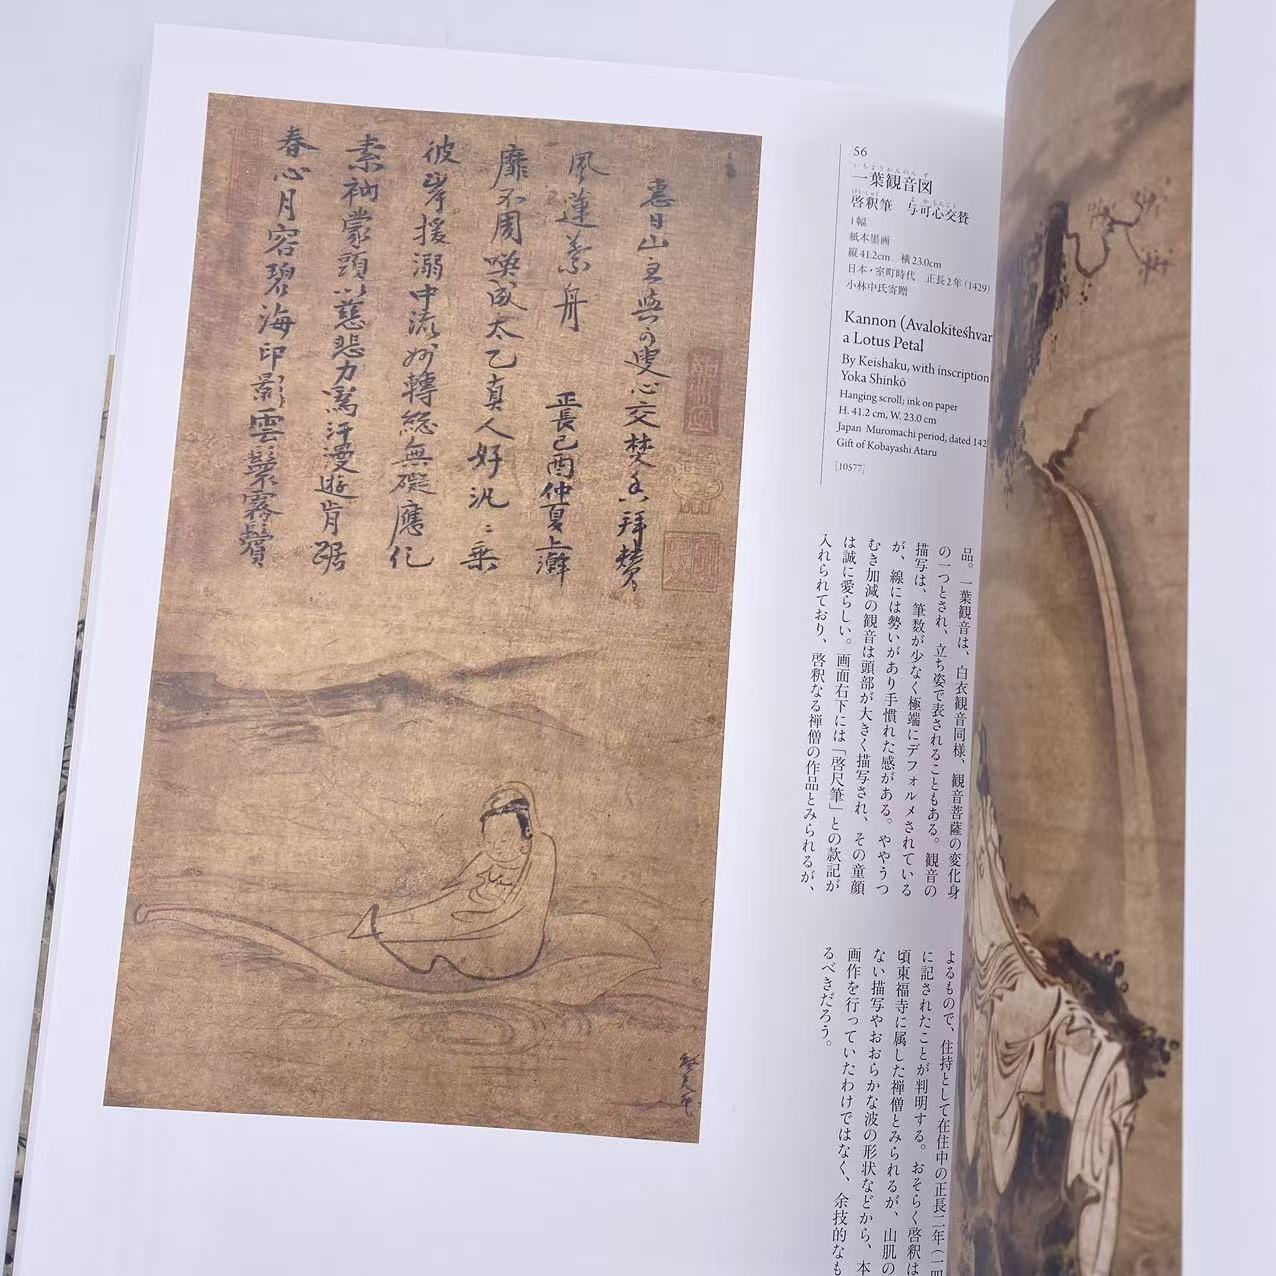 春心月容碧海印影雲鬟霧鬢
素衲蒙頭以慈悲力駕汗漫遊肯踞
彼岸援溺中流妙轉総無礙應化
靡不周喚成太乙真人好汎〻乗
風蓮葉舟 正長己酉仲夏上澣
恵日山主與可叟心交焚香拜賛
56
いちようかんのんず
一葉観音図
けいしゃく よかしんこう
啓釈筆 与可心交賛
1幅
紙本墨画
縦41.2cm 横23.0cm
日本・室町時代 正長2年(1429)
小林中氏寄贈
Kannon (Avalokiteśhvar
a Lotus Petal
By Keishaku, with inscription
Yoka Shinkō
Hanging scroll; ink on paper
H. 41.2 cm, W. 23.0 cm
Japan Muromachi period, dated 142
Gift of Kobayashi Ataru
[10577]
品。一葉観音は、白衣観音同様、観音菩薩の変化身
の一つとされ、立ち姿で表されることもある。観音の
描写は、筆数が少なく極端にデフォルメされている
が、線には勢いがあり手慣れた感がある。ややうつ
むき加減の観音は頭部が大きく描写され、その童顔
は誠に愛らしい。画面右下には「啓尺筆」との款記が
入れられており、啓釈なる禅僧の作品とみられるが、
よるもので、住持として在住中の正長二年(一四
に記されたことが判明する。おそらく啓釈は
頃東福寺に属した禅僧とみられるが、山肌の
ない描写やおおらかな波の形状などから、本
画作を行っていたわけではなく、余技的なも
るべきだろう。